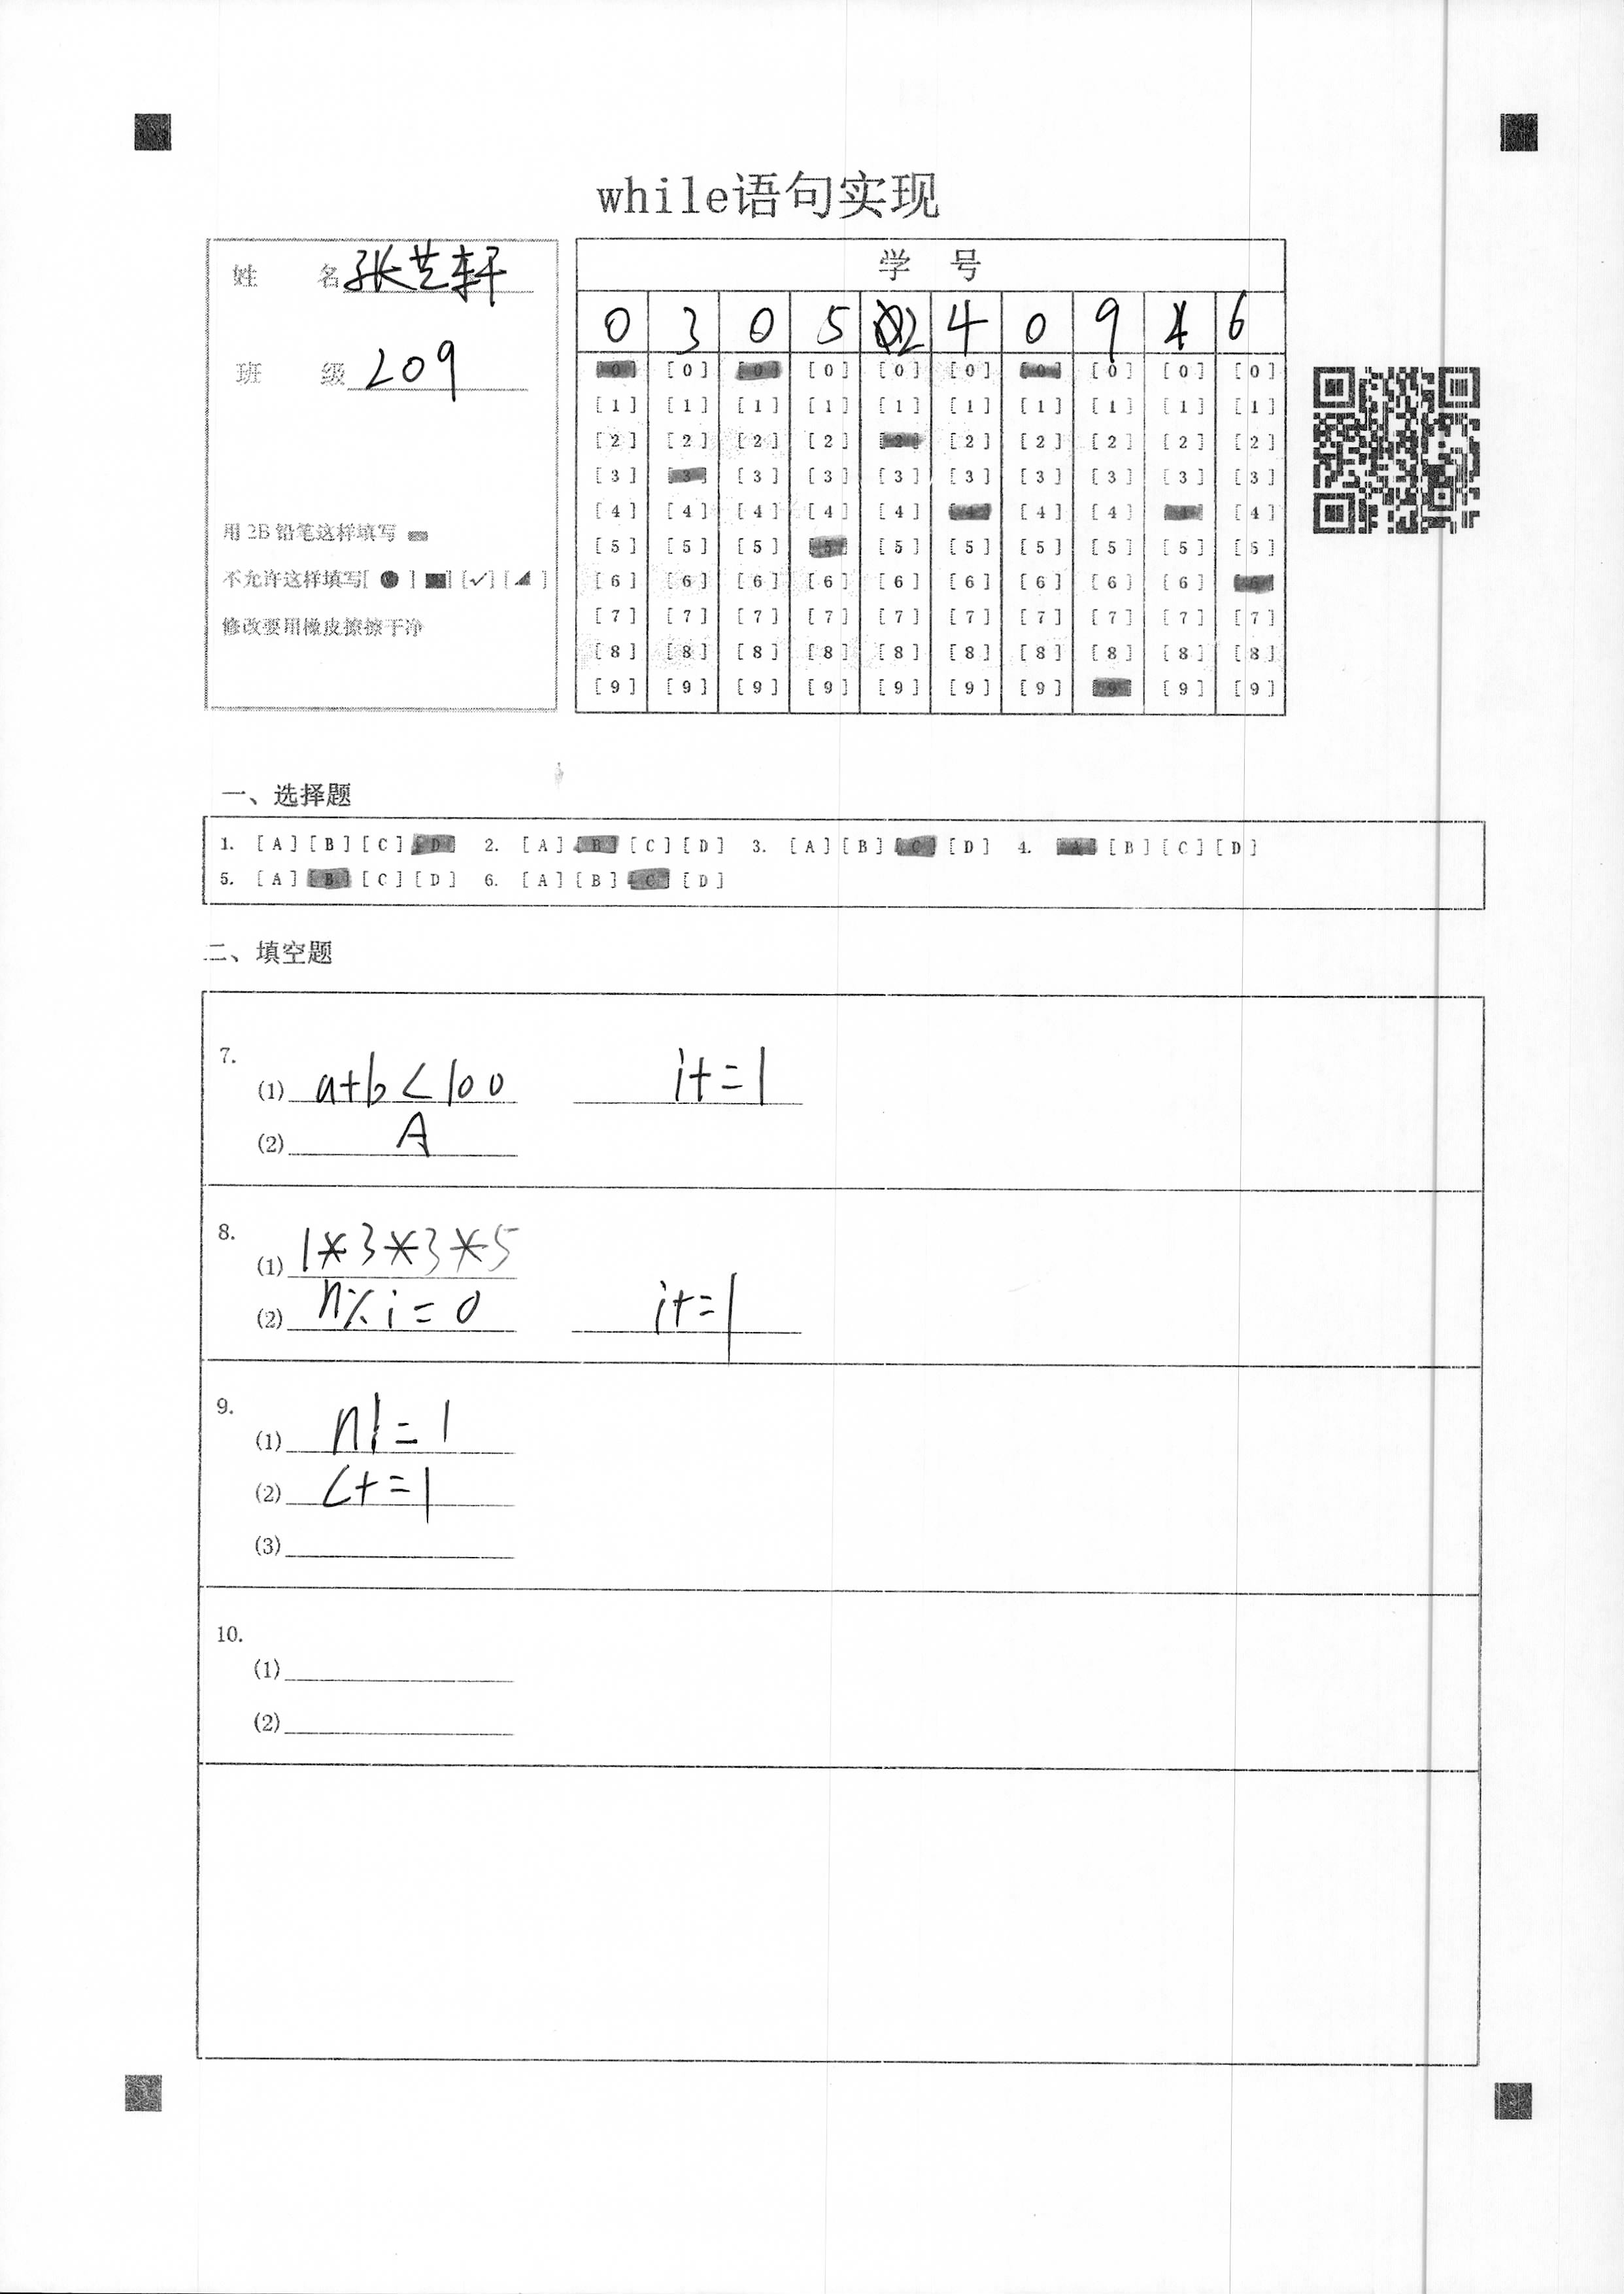 while语句实现
姓 名 张芝轩
班 级 209
用 2B 铅笔这样填写
不允许这样填写[ ● ] [■] [✓] [◢ ]
修改要用橡皮擦擦干净
学 号
0 3 0 5 2 4 0 9 4 6
[0] [0] [0] [0] [0] [0] [0] [0] [0] [0]
[1] [1] [1] [1] [1] [1] [1] [1] [1] [1]
[2] [2] [2] [2] [2] [2] [2] [2] [2] [2]
[3] [3] [3] [3] [3] [3] [3] [3] [3] [3]
[4] [4] [4] [4] [4] [4] [4] [4] [4] [4]
[5] [5] [5] [5] [5] [5] [5] [5] [5] [5]
[6] [6] [6] [6] [6] [6] [6] [6] [6] [6]
[7] [7] [7] [7] [7] [7] [7] [7] [7] [7]
[8] [8] [8] [8] [8] [8] [8] [8] [8] [8]
[9] [9] [9] [9] [9] [9] [9] [9] [9] [9]
一、选择题
1. [A] [B] [C] [D] 2. [A] [B] [C] [D] 3. [A] [B] [C] [D] 4. [A] [B] [C] [D]
5. [A] [B] [C] [D] 6. [A] [B] [C] [D]
二、填空题
7.
(1) a+b<100 i+=1
(2) A
8.
(1) 1*3*3*5
(2) n%i=0 i+=1
9.
(1) n!=1
(2) c+=1
(3)
10.
(1)
(2)